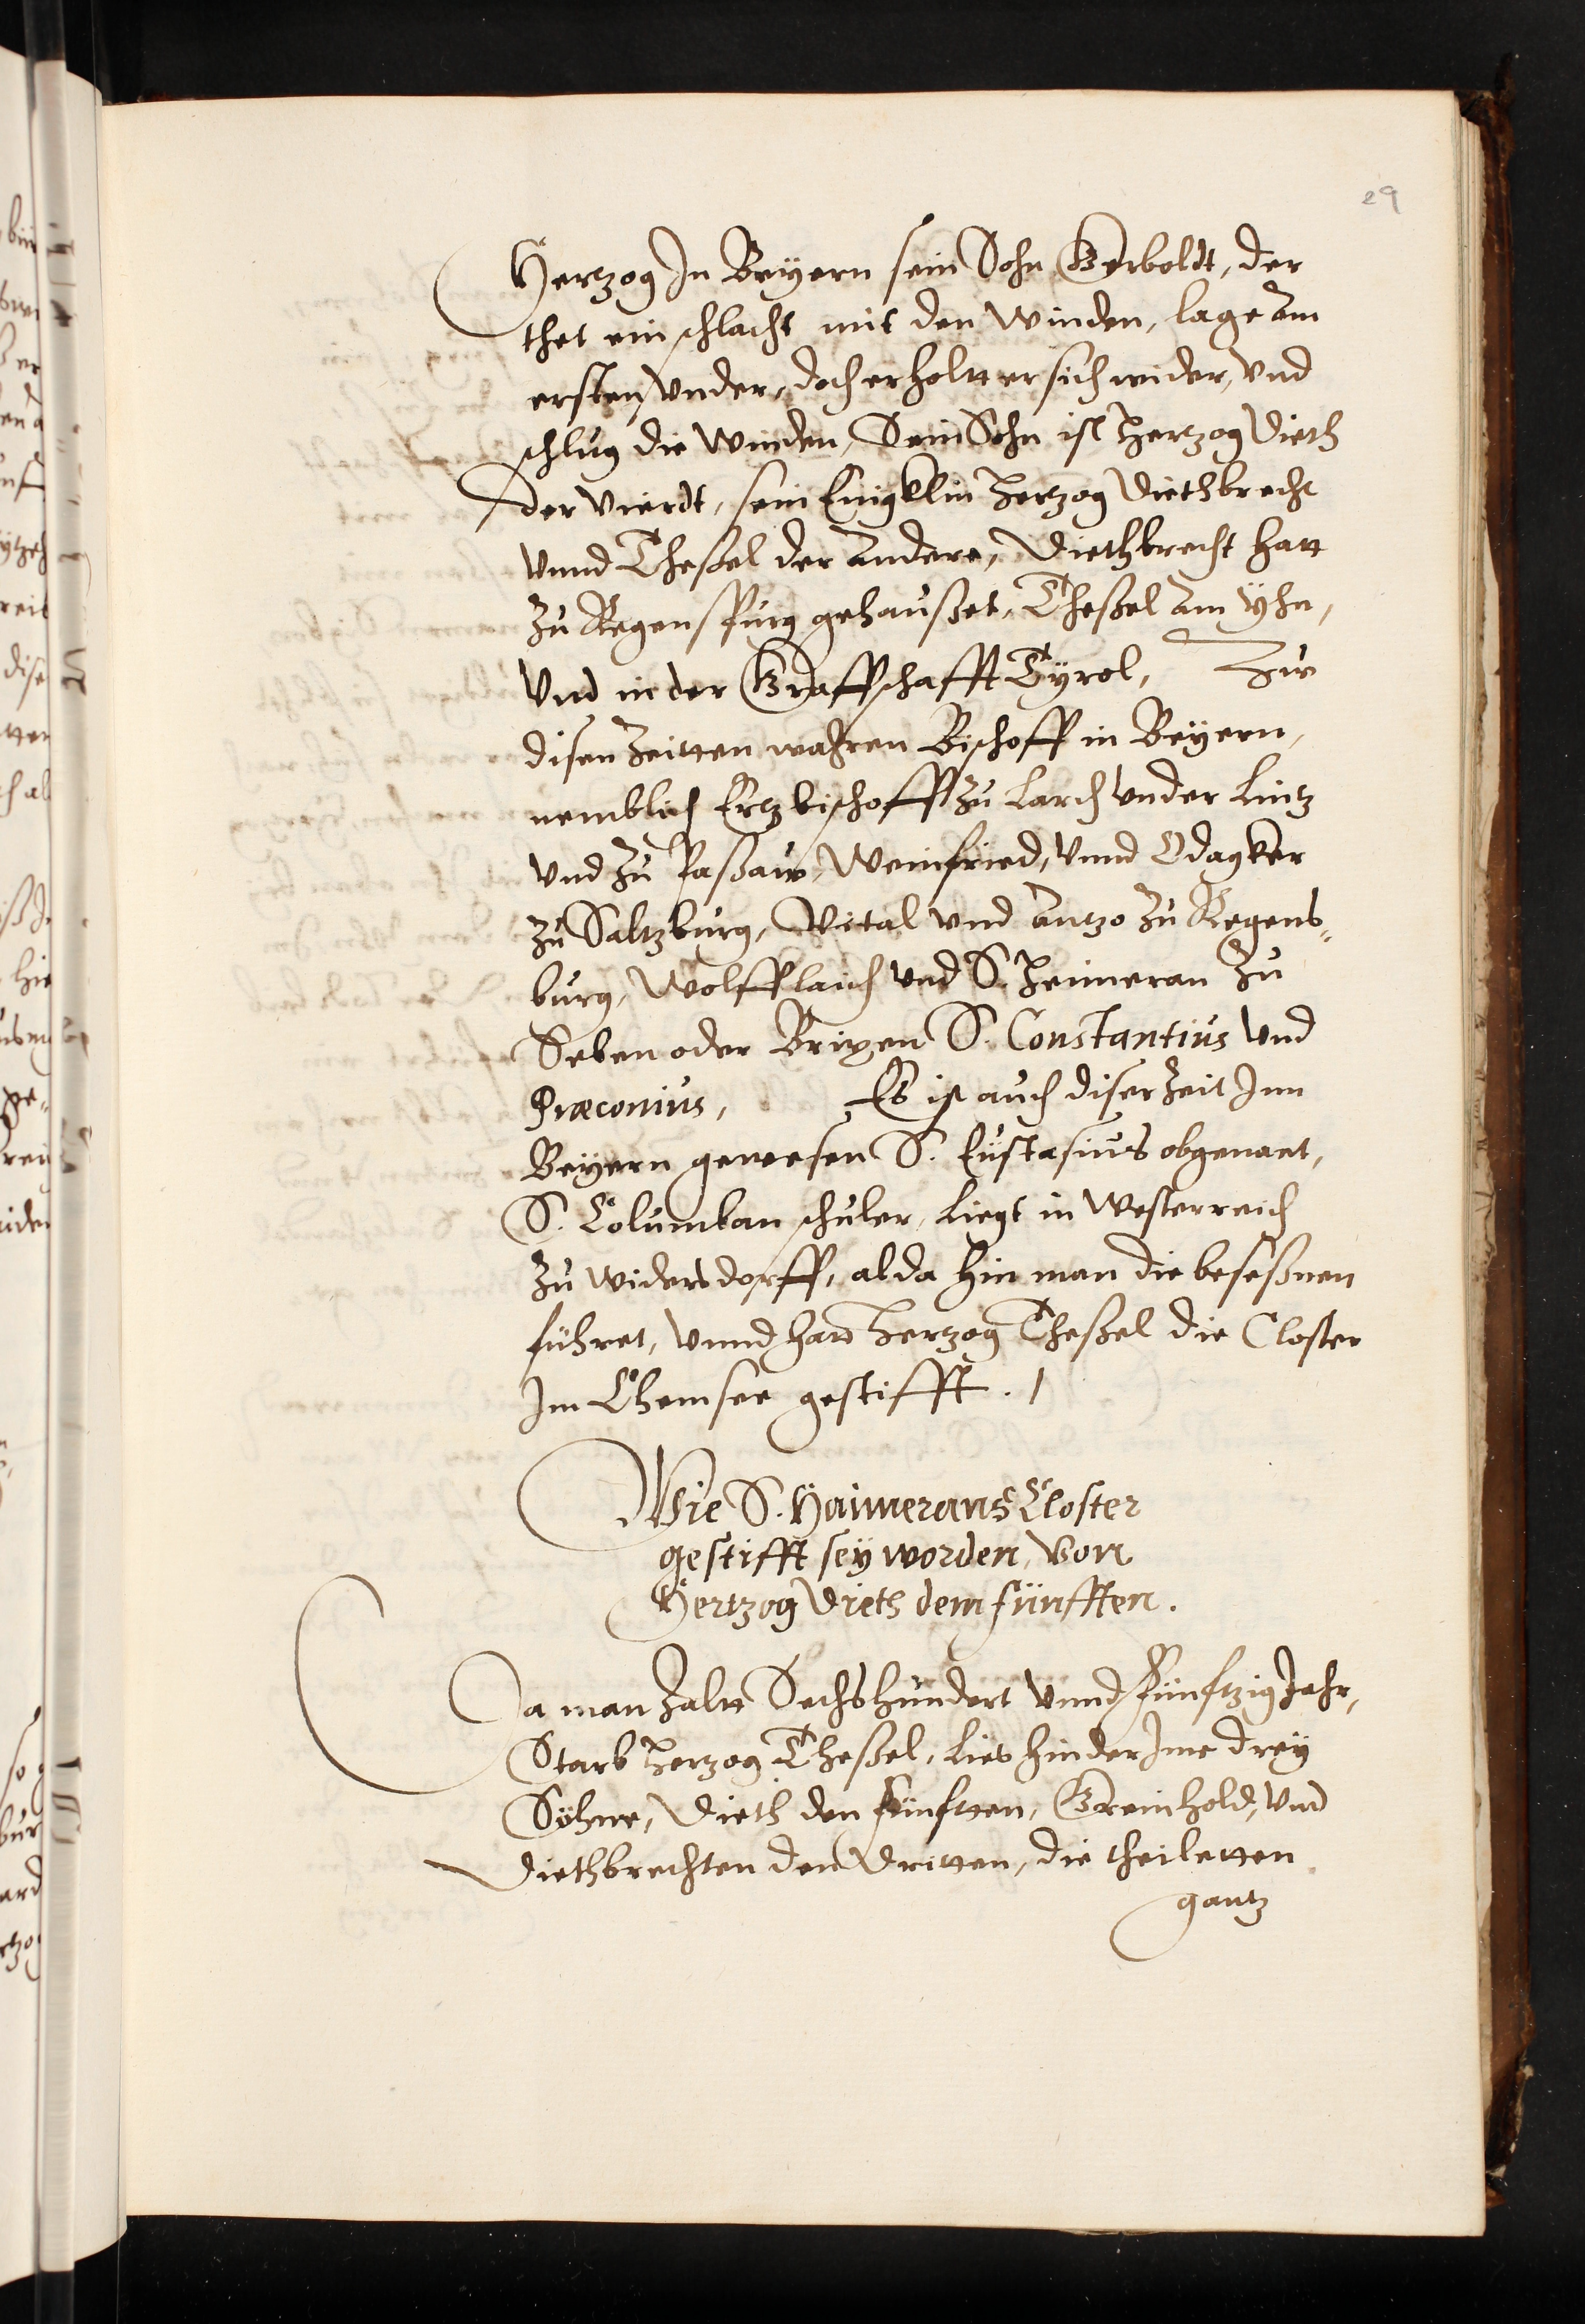 29
Hertzog In Beyern sein Sohn Gerboldt, der
thet ein schlacht mit den Winden, lage am
ersten vnder, doch erholtt er sich wider, vnd
schlug die Winden, Sein Sohn ist Hertzog Dieth
der vierdt, sein Enigklin Hertzog Diethbrecht
vnnd Theßel der Andere, Diethbrecht hatt
zu Regenspurg gehaußet, Theßel am Yhn,
vnd in der Graffschafft Tyrol, Zur
disen Zeitten wahren Bischoff in Beyern,
nemblich Ertzbischoff zu Larch vnder Lintz
vnd zu Paßaw, Weinfried, vnnd Odagker
zu Saltzburg, Vital vnd Antzo zu Regens-
burg, Wolfflaich vnd S. Heimeran zu
Seben oder Brixen S. Constantius vnd
Præconius, Es ist auch diser Zeit Inn
Beyern gewesen S. Eustasius obgenant,
S. Columban schuler, Liegt in Westerreich
zu Widersdorff, alda hin man die beseßnen
führet, vnnd hatt Hertzog Theßel die Closter
Im Chemsee gestifft. /
Wie S. Haimerans Closter
gestifft sey worden, von
Hertzog Dieth dem fünfften.
Da man zaltt Sechshundert vnnd Fünfftzig Jahr,
Starb Hertzog Theßel, Lies hinder Ime drey
Söhne, Dieth den fünfften, Greinhold, vnd
Diethbrechten den Dritten, die theiletten
gantz